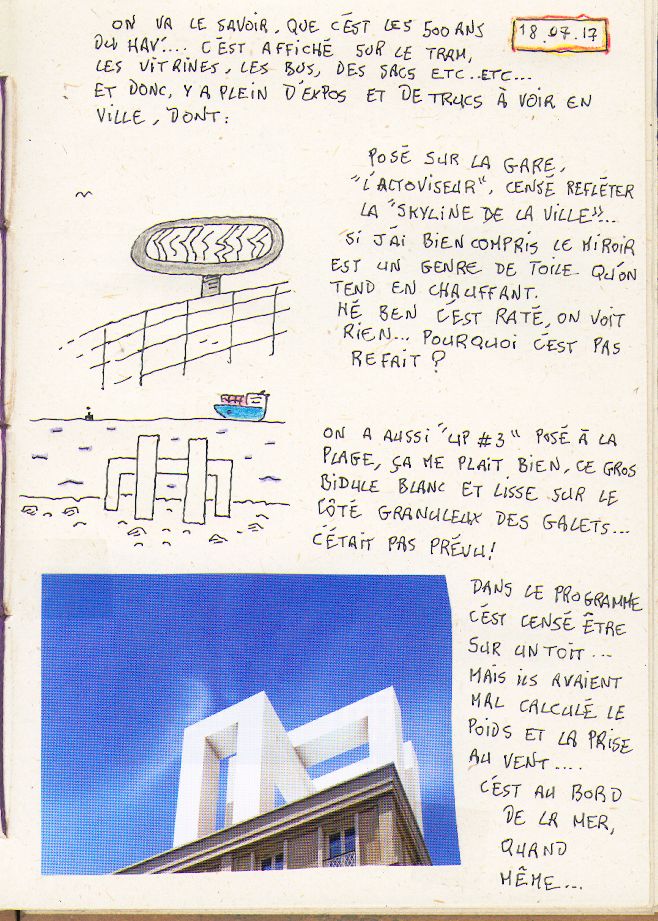 ON VA LE SAVOIR, QUE C'EST LES 500 ANS
DU HAV'... C'EST AFFICHÉ SUR LE TRAM,
18.07.17
LES VITRINES, LES BUS, DES SACS ETC.. ETC...
ET DONC, Y A PLEIN D'EXPOS ET DE TRUCS À VOIR EN
VILLE, DONT:
POSÉ SUR LA GARE,
"L'ALTOVISEUR", CENSÉ REFLÉTER
LA "SKYLINE DE LA VILLE"...
SI J'AI BIEN COMPRIS LE MIROIR
EST UN GENRE DE TOILE QU'ON
TEND EN CHAUFFANT.
HÉ BEN C'EST RATÉ, ON VOIT
RIEN... POURQUOI C'EST PAS
REFAIT?
ON A AUSSI "UP #3" POSÉ À LA
PLAGE, ÇA ME PLAIT BIEN, CE GROS
BIDULE BLANC ET LISSE SUR LE
CÔTÉ GRANULEUX DES GALETS...
C'ÉTAIT PAS PRÉVU!
DANS LE PROGRAMME
C'EST CENSÉ ÊTRE
SUR UN TOIT...
MAIS ILS AVAIENT
MAL CALCULÉ LE
POIDS ET LA PRISE
AU VENT....
C'EST AU BORD
DE LA MER,
QUAND
MÊME...